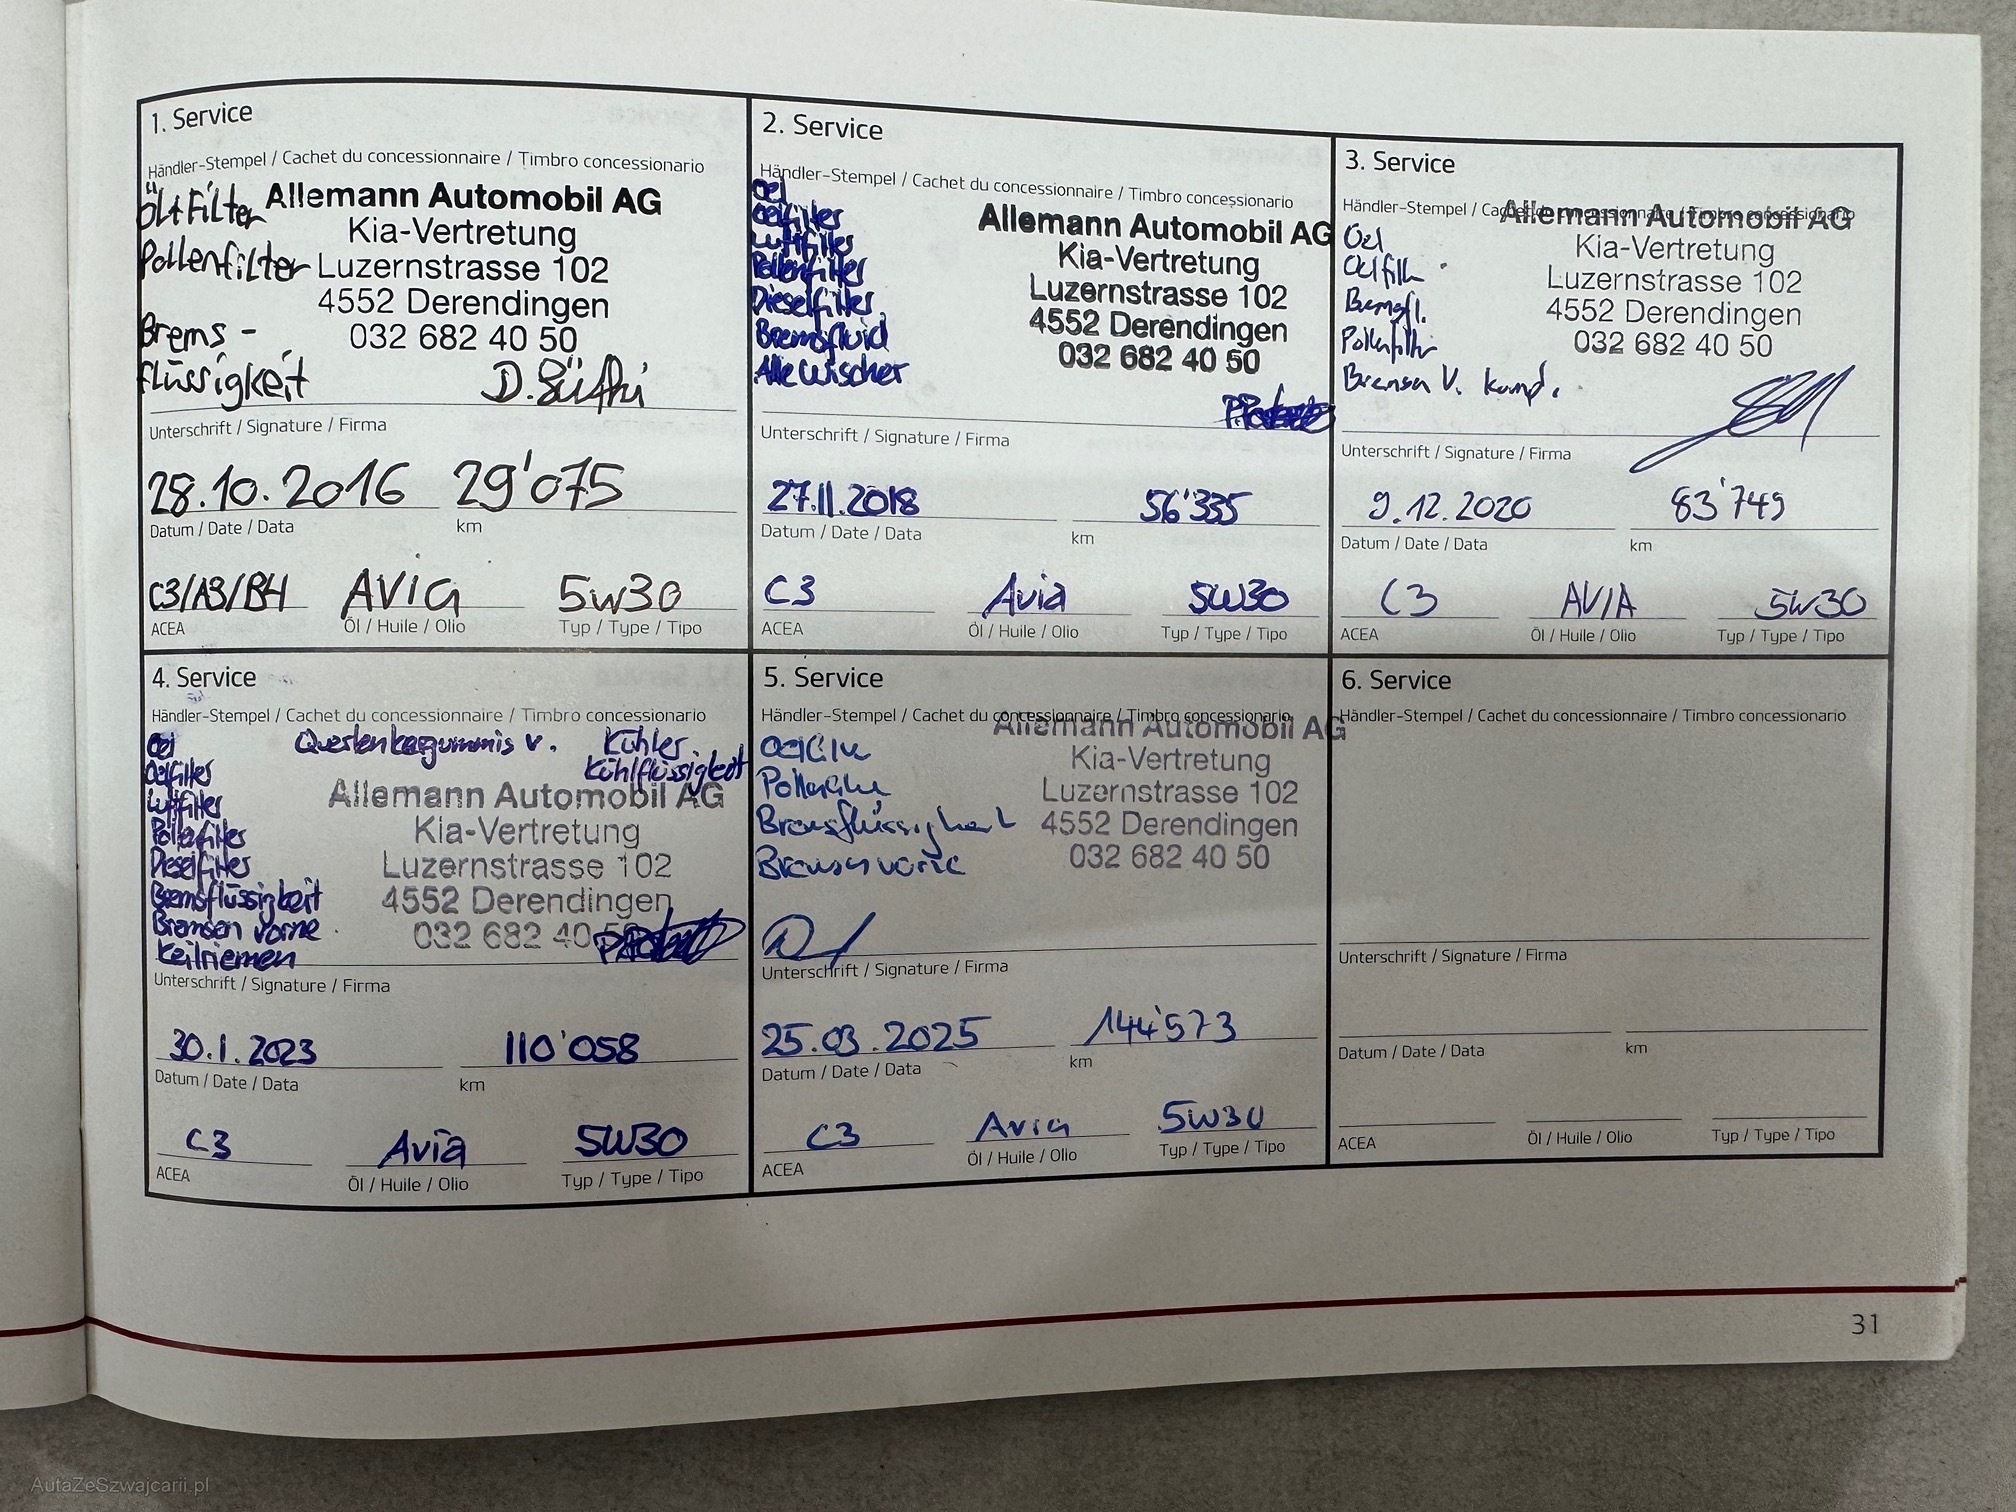 1. Service
Händler-Stempel / Cachet du concessionnaire / Timbro concessionario
Öl+Filter
Pollenfilter
Brems-
flüssigkeit
Allemann Automobil AG
Kia-Vertretung
Luzernstrasse 102
4552 Derendingen
032 682 40 50
Unterschrift / Signature / Firma
28.10.2016 29'075
Datum / Date / Data km
C3/A3/B4 AVIA 5W30
ACEA Öl / Huile / Olio Typ / Type / Tipo
2. Service
Händler-Stempel / Cachet du concessionnaire / Timbro concessionario
Oel
Oelfilter
Luftfilter
Pollenfilter
Dieselfilter
Bremsfluid
Alle Wischer
Allemann Automobil AG
Kia-Vertretung
Luzernstrasse 102
4552 Derendingen
032 682 40 50
Unterschrift / Signature / Firma
27.11.2018 56'335
Datum / Date / Data km
C3 Avia 5W30
ACEA Öl / Huile / Olio Typ / Type / Tipo
3. Service
Händler-Stempel / Cachet du concessionnaire / Timbro concessionario
Oel
Oelfilter
Bremsfl.
Pollenfilter
Bremsen V. kompl.
Allemann Automobil AG
Kia-Vertretung
Luzernstrasse 102
4552 Derendingen
032 682 40 50
Unterschrift / Signature / Firma
9.12.2020 83'749
Datum / Date / Data km
C3 AVIA 5W30
ACEA Öl / Huile / Olio Typ / Type / Tipo
4. Service
Händler-Stempel / Cachet du concessionnaire / Timbro concessionario
Oel
Oelfilter
Luftfilter
Pollenfilter
Dieselfilter
Bremsflüssigkeit
Bremsen vorne
Keilriemen
Querlenkergummis v.
Kühler
Kühlflüssigkeit
Allemann Automobil AG
Kia-Vertretung
Luzernstrasse 102
4552 Derendingen
032 682 40 50
Unterschrift / Signature / Firma
30.1.2023 110'058
Datum / Date / Data km
C3 Avia 5W30
ACEA Öl / Huile / Olio Typ / Type / Tipo
5. Service
Händler-Stempel / Cachet du concessionnaire / Timbro concessionario
Bremsflüssigkeit
Bremsen vorne
Allemann Automobil AG
Kia-Vertretung
Luzernstrasse 102
4552 Derendingen
032 682 40 50
Unterschrift / Signature / Firma
25.03.2025 144'573
Datum / Date / Data km
C3 Avia 5W30
ACEA Öl / Huile / Olio Typ / Type / Tipo
6. Service
Händler-Stempel / Cachet du concessionnaire / Timbro concessionario
Unterschrift / Signature / Firma
Datum / Date / Data km
ACEA Öl / Huile / Olio Typ / Type / Tipo
31
AutaZeSzwajcarii.pl